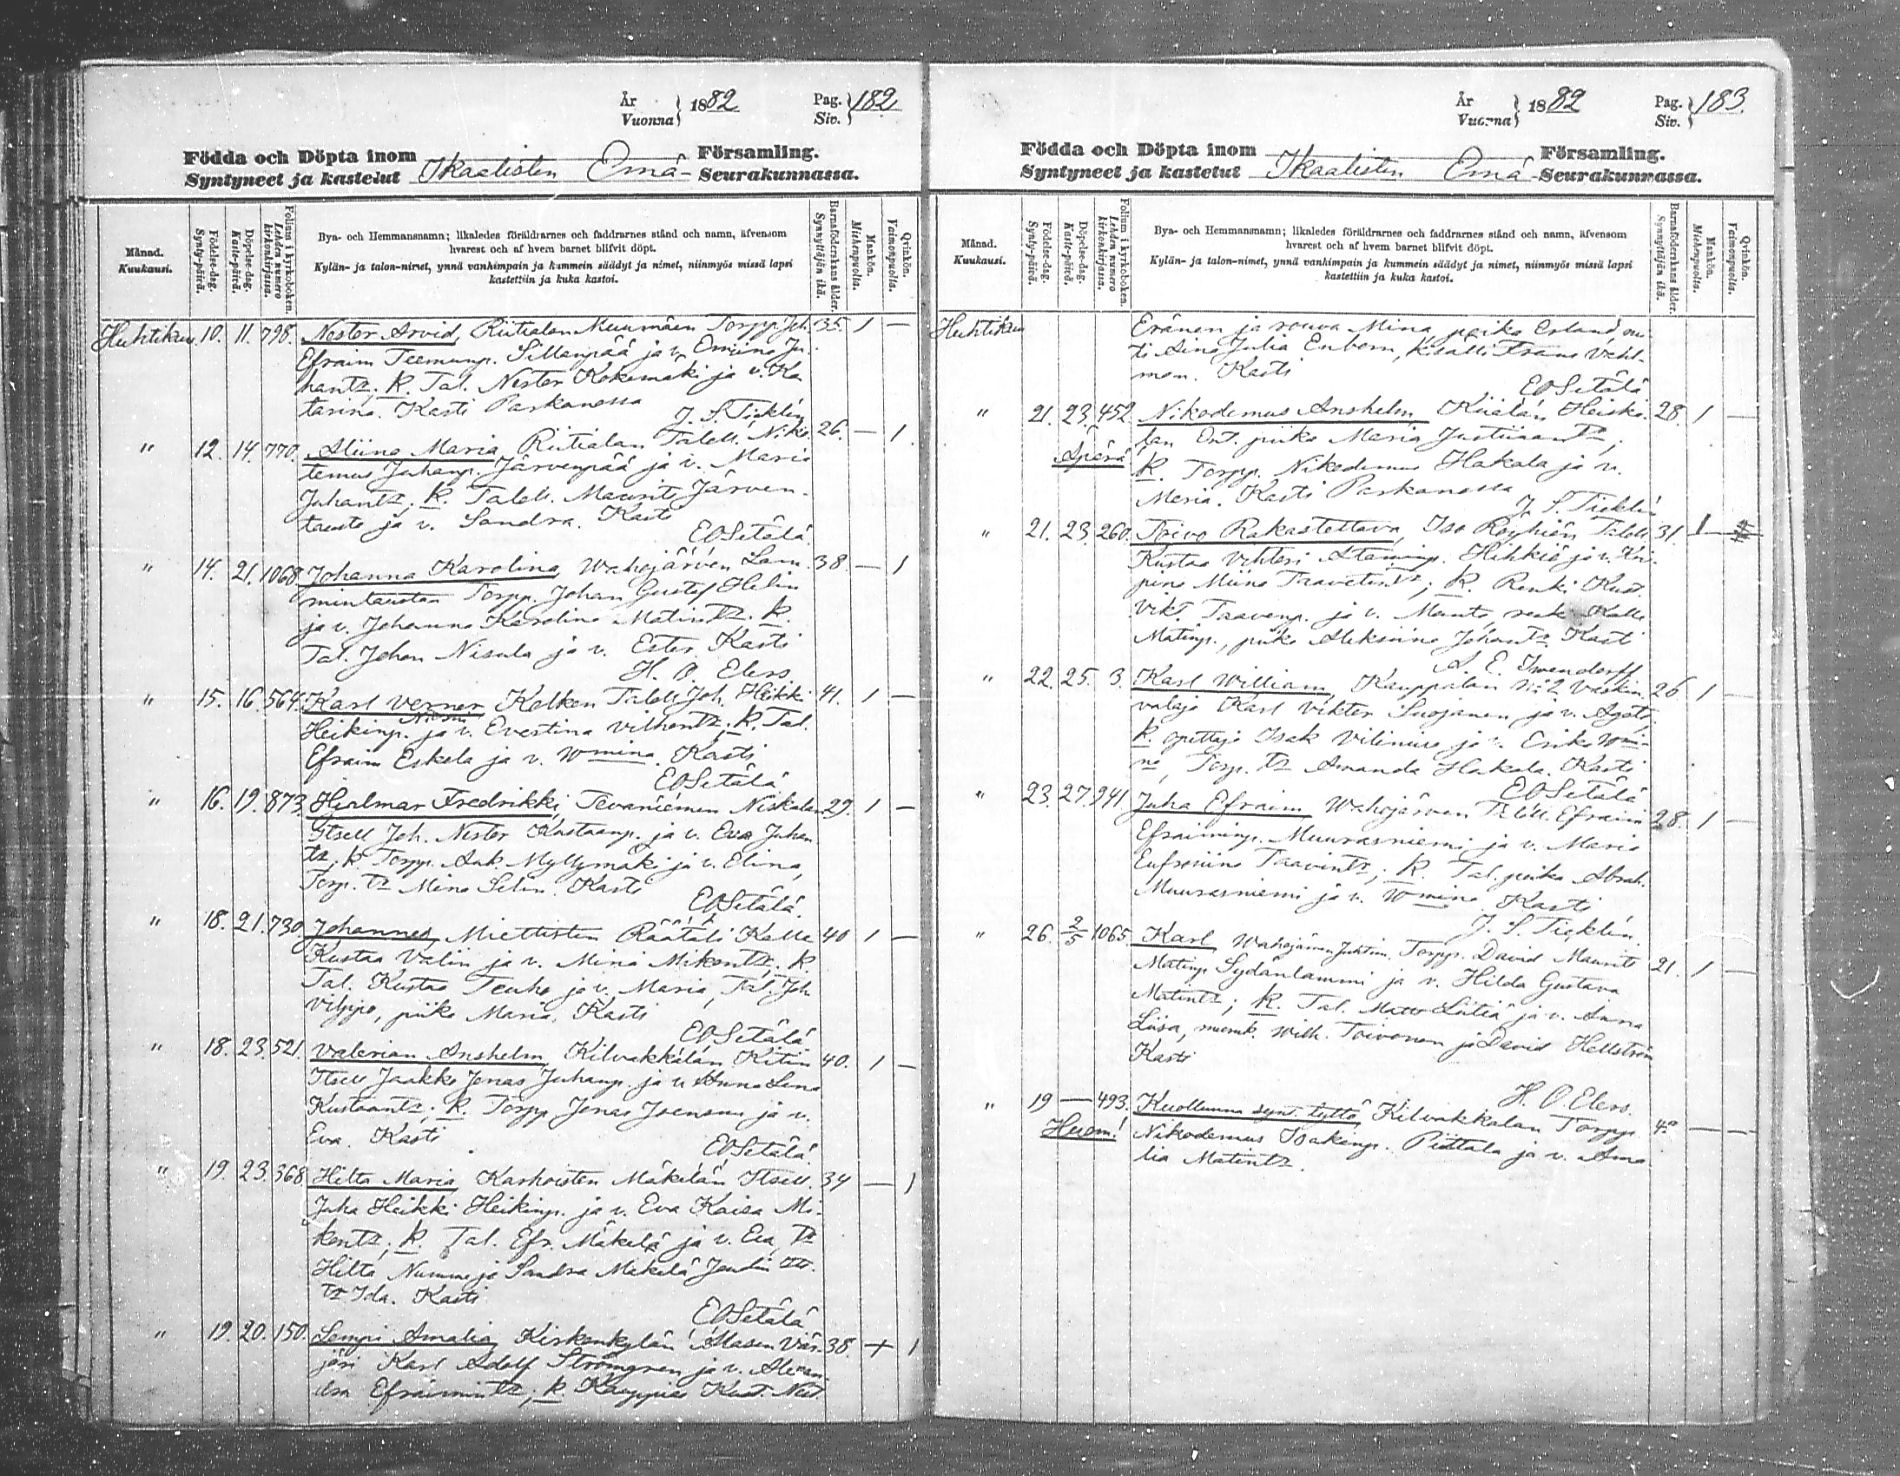 År
Vuonna } 1882.
Pag.
Siv. } 182
Födda och Döpta inom Församling.
Syntyneet ja kastetut Ikaalisten Emä- Seurakunnassa.
Månad.
Kuukausi.
Födelse-dag.
Synty-päivä.
Döpelse-dag.
Kaste-päivä.
Folium i kyrkoboken.
Lehden numero kirkonkirjassa.
Bya- och Hemmansnamn; likaledes föräldrarnes och faddrarnes stånd och namn, äfvensom
hvarest och af hvem barnet blifvit döpt.
Kylän- ja talon-nimet, ynnä vanhimpain ja kummein säädyt ja nimet, niinmyös missä lapsi
kastettiin ja kuka kastoi.
Barnaföderskans ålder.
Synnyttäjän ikä.
Mankön.
Miehenpuolia.
Qvinkön.
Vaimonpuolia.
Huhtikuu 10. 11. 798. Nestor Arvid, Riitialan Muumäen Torpp. Joh. 35. 1 —
Efraim Teemunp. Sillanpää ja v. Emiina Ju-
hantr. K. Tal. Nestor Kokemäki ja v. Ka-
tariina. Kasti Parkanossa
J. S. Ticklén
" 12. 14. 770. Aliina Maria Riitialan Talell. Niko- 26. — 1.
temus Juhanp. Järvenpää ja v. Maria
Juhantr. K. Talell. Maurits Järven-
tausta ja v. Sandra. Kasti
EOSetälä.
" 14. 21. 1068. Johanna Karolina, Wahojärven Lam- 38. — 1
mintaustan Torpp. Johan Gustaf Helin
ja v. Johanna Karolina Matintr. K.
Tal. Johan Nisula ja v. Ester. Kasti
H. O. Elers.
" 15. 16. 564. Karl Verner Kalken Talell. Joh. Heikki 41. 1 —
Heikinp. ja v. Evestina Vilhentr. K. Tal.
Efraim Eskola ja v. Wmina. Kasti
EOSetälä
" 16. 19. 873. Hialmar Fredrikki, Tevaniemen Niskalan 29. 1 —
Itsell. Joh. Nestor Kustaanp. ja v. Eva Juhan-
tr. K. Torpp. Ant. Myllymäki ja v. Elina,
Torp. tr Mina Selin. Kasti
EOSetälä.
" 18. 21. 730. Johannes, Miettisten Räätäli Kalle 40 1 —
Kustaa Valin ja v. Mina Mikontr. K.
Tal. Kustaa Teuho ja v. Maria, Tal. Joh
Vilppo, piika Maria. Kasti
EOSetälä
" 18. 23. 521. Valerian Anshelm, Kilvakkalan Kitin 40. 1 —
Itsell Jaakko Jonas Juhanp. ja v. Anna Lena
Kustaantr. K. Torpp Jonas Joensuu ja v.
Eva. Kasti
EOSetälä.
" 19. 23. 368 Hilta Maria Karhoisten Mäkelän Itsell. 34 — 1
Juha Heikki Heikinp. ja v. Eva Kaisa Mi-
kontr. K. Tal. Efr. Mäkelä ja v. Eva, Tr
Hilta Nummi ja Sandra Mäkelä
tr Ida. Kasti
EOSetälä
" 19. 20. 150. Lempi Amalia, Kirkonkylän Masun Vär- 38. + 1
järi Karl Adolf Strömgren ja v. Alexan-
dra Efraimintr; K. Kauppias Kust. Nest.
År
Vuonna } 1882
Pag.
Siv. } 183.
Födda och Döpta inom Församling.
Syntyneet ja kastetut Ikaalisten Emä- Seurakunnassa.
Månad.
Kuukausi.
Födelse-dag.
Synty-päivä.
Döpelse-dag.
Kaste-päivä.
Folium i kyrkoboken.
Lehden numero kirkonkirjassa.
Bya- och Hemmansnamn; likaledes föräldrarnes och faddrarnes stånd och namn, äfvensom
hvarest och af hvem barnet blifvit döpt.
Kylän- ja talon-nimet, ynnä vanhimpain ja kummein säädyt ja nimet, niinmyös missä lapsi
kastettiin ja kuka kastoi.
Barnaföderskans ålder.
Synnyttäjän ikä.
Mankön.
Miehenpuolia.
Qvinkön.
Vaimonpuolia.
Huhtikuu Eränen ja rouva Mina, poika Erland,
Aina Julia Enbom, Kisälli Frans Vahl-
man. Kasti
EOSetälä
" 21. 23. 452. Nikodemus Anshelm Kiialan Heiski- 28. 1 —
lan Ent. piika Maria Justiinantr.
Äpärä
K. Torpp. Nikodemus Hakala ja v.
Maria. Kasti Parkanossa
J. S. Ticklén
" 21. 23. 260. Toivo Rakastettava, Iso Röyhiön Talell 31. 1 —
Kustaa Vihtori Ataminp. Hihkiö ja v.
Miina Taavetintr; K. Renki Kust.
Vikt. Taavenp. ja v. Manta, renk. Kalle
Matinp., piika Aleksiina Johantr. Kasti
A. E. Iwendorff
" 22. 25. 3. Karl William, Kauppalan N:o 2 Vaskin- 26 1 —
valaja Karl Viktor Suojanen ja v. Agata.
K. opettaja Isak Vilenius ja v. Erika Wmi-
na, Torp. tr Amanda Hakala. Kasti
EOSetälä
" 23. 27. 941. Juha Efraim Wahojärven Talell. Efraim 28. 1 —
Efraiminp. Muurasniemi ja v. Maria
Eufrosiina Taavintr; K. Tal. poika Abrah.
Muurasniemi ja v. Wmina. Kasti
J. S. Ticklén.
" 26. 2/5 1065. Karl Wahojärven Juhtin. Torpp. David Maurits 21. 1 —
Matinp Sydänlammi ja v. Hilda Gustava
Matintr; K. Tal. Matts Liitiä ja v. Anna
Liisa, Wilh. Toivonen ja David Hellström
Kasti
H. O. Elers.
" 19 — 493. Kuolleena synt. tyttö, Kilvakkalan Torpp. 40 — —
Huom! Nikodemus Isakinp. Piittala ja v. Ama-
lia Matintr.